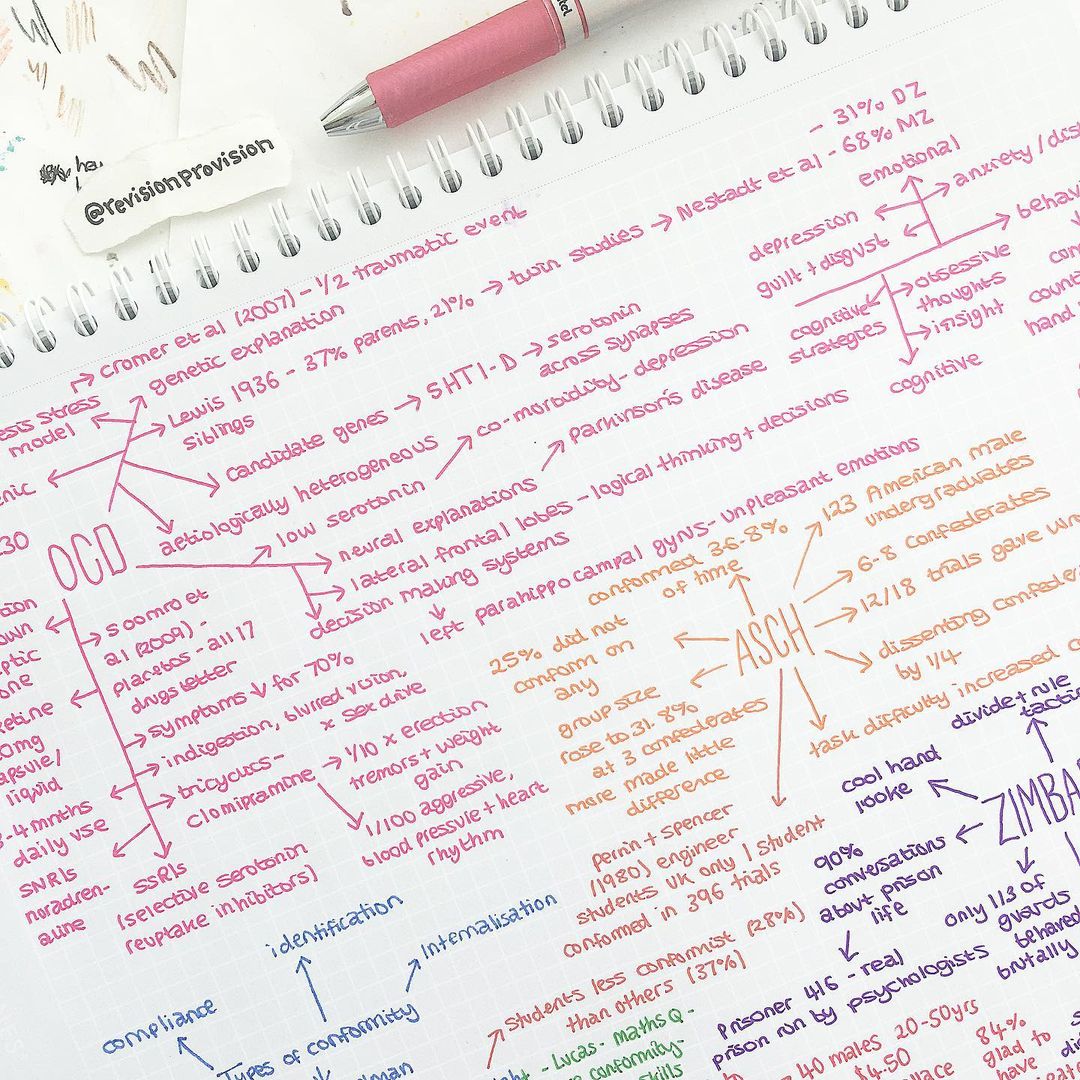 @revisionprovision
cromer et al (2007) - 1/2 traumatic event
genetic explanation
stress
model
Lewis 1936 - 37% parents, 21%
siblings
twin studies
Nestadt et al - 68% MZ
- 31% DZ
candidate genes
5HT1-D
serotonin
across synapses
aetiologically heterogeneous
co-morbidity - depression
low serotonin
Parkinson's disease
neural explanations
lateral frontal lobes - logical thinking + decisions
decision making systems
left parahippocampal gyrus - unpleasant emotions
emotional
anxiety /
depression
guilt + disgust
cognitive
strategies
obsessive
thoughts
insight
cognitive
hand
OCD
soomro et
al (2009) -
placebos - all 17
drugs better
symptoms ↓ for 70%
indigestion, blurred vision,
x sex drive
tricyclics -
clomipramine
1/10 x erection
tremors + weight
gain
1/100 aggressive,
blood pressure + heart
rhythm
SSRIs
(selective serotonin
reuptake inhibitors)
liquid
mnths
daily use
SNRIs
noradren-
aline
ASCH
conformed 36.8%
of time
123 American male
undergraduates
6-8 confederates
12/18 trials gave
dissenting
by 1/4
task difficulty increased
25% did not
conform on
any
group size
rose to 31.8%
at 3 confederates
more made little
difference
perrin + spencer
(1980) engineer
students UK only 1 student
conformed in 396 trials
students less conformist (28%)
than others (37%)
Lucas - maths Q -
conformity -
skills
divide + rule
cool hand
looke
90%
conversations
about prison
life
only 1/3 of
guards
behaved
brutally
Prisoner 416 - real
prison run by psychologists
40 males 20-50yrs
$4.50
84%
glad to
have
identification
Internalisation
compliance
Types of conformity